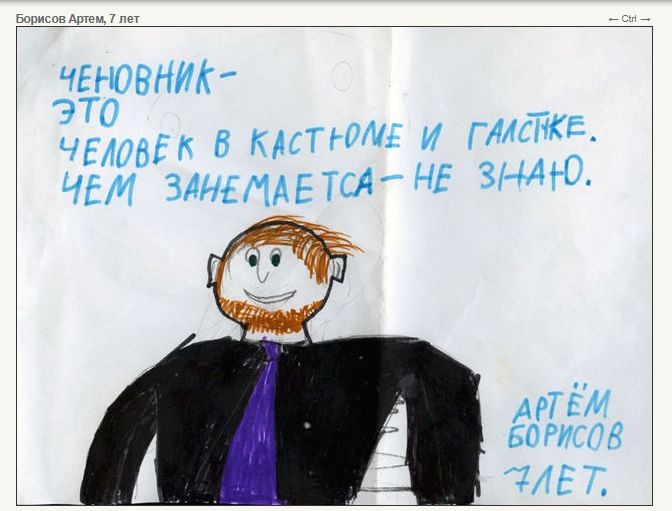 Борисов Артем, 7 лет
← Ctrl →
ЧЕНОВНИК –
ЭТО
ЧЕЛОВЕК В КАСТЮМЕ И ГАЛСТКЕ.
ЧЕМ ЗАНЕМАЕТСА – НЕ ЗНАЮ.
АРТЁМ
БОРИСОВ
7 ЛЕТ.